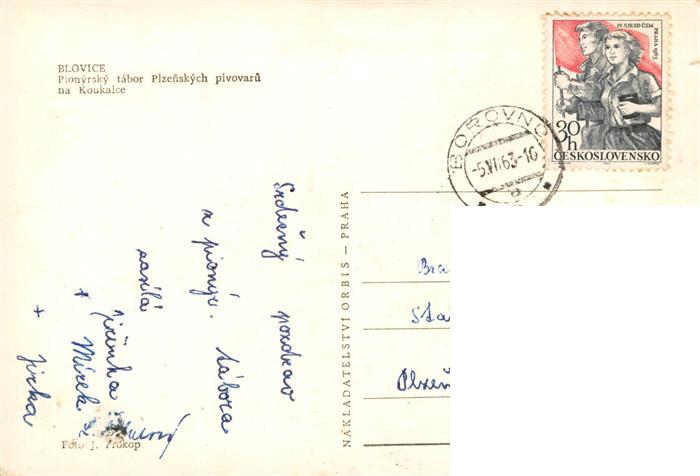 BLOVICE
Pionýrský tábor Plzeňských pivovarů
na Koukalce
IV. SJEZD ČSM
PRAHA 1963
30
h
ČESKOSLOVENSKO
BOROVNO
-5.VI.63-16
a
NAKLADATELSTVÍ ORBIS — PRAHA
Srdečný pozdrav
z pionýr. tábora
zasílá
Jiřinka
+ Mirek
+ Jirka
Bra
Sta
Plzeň
Foto J. Prokop